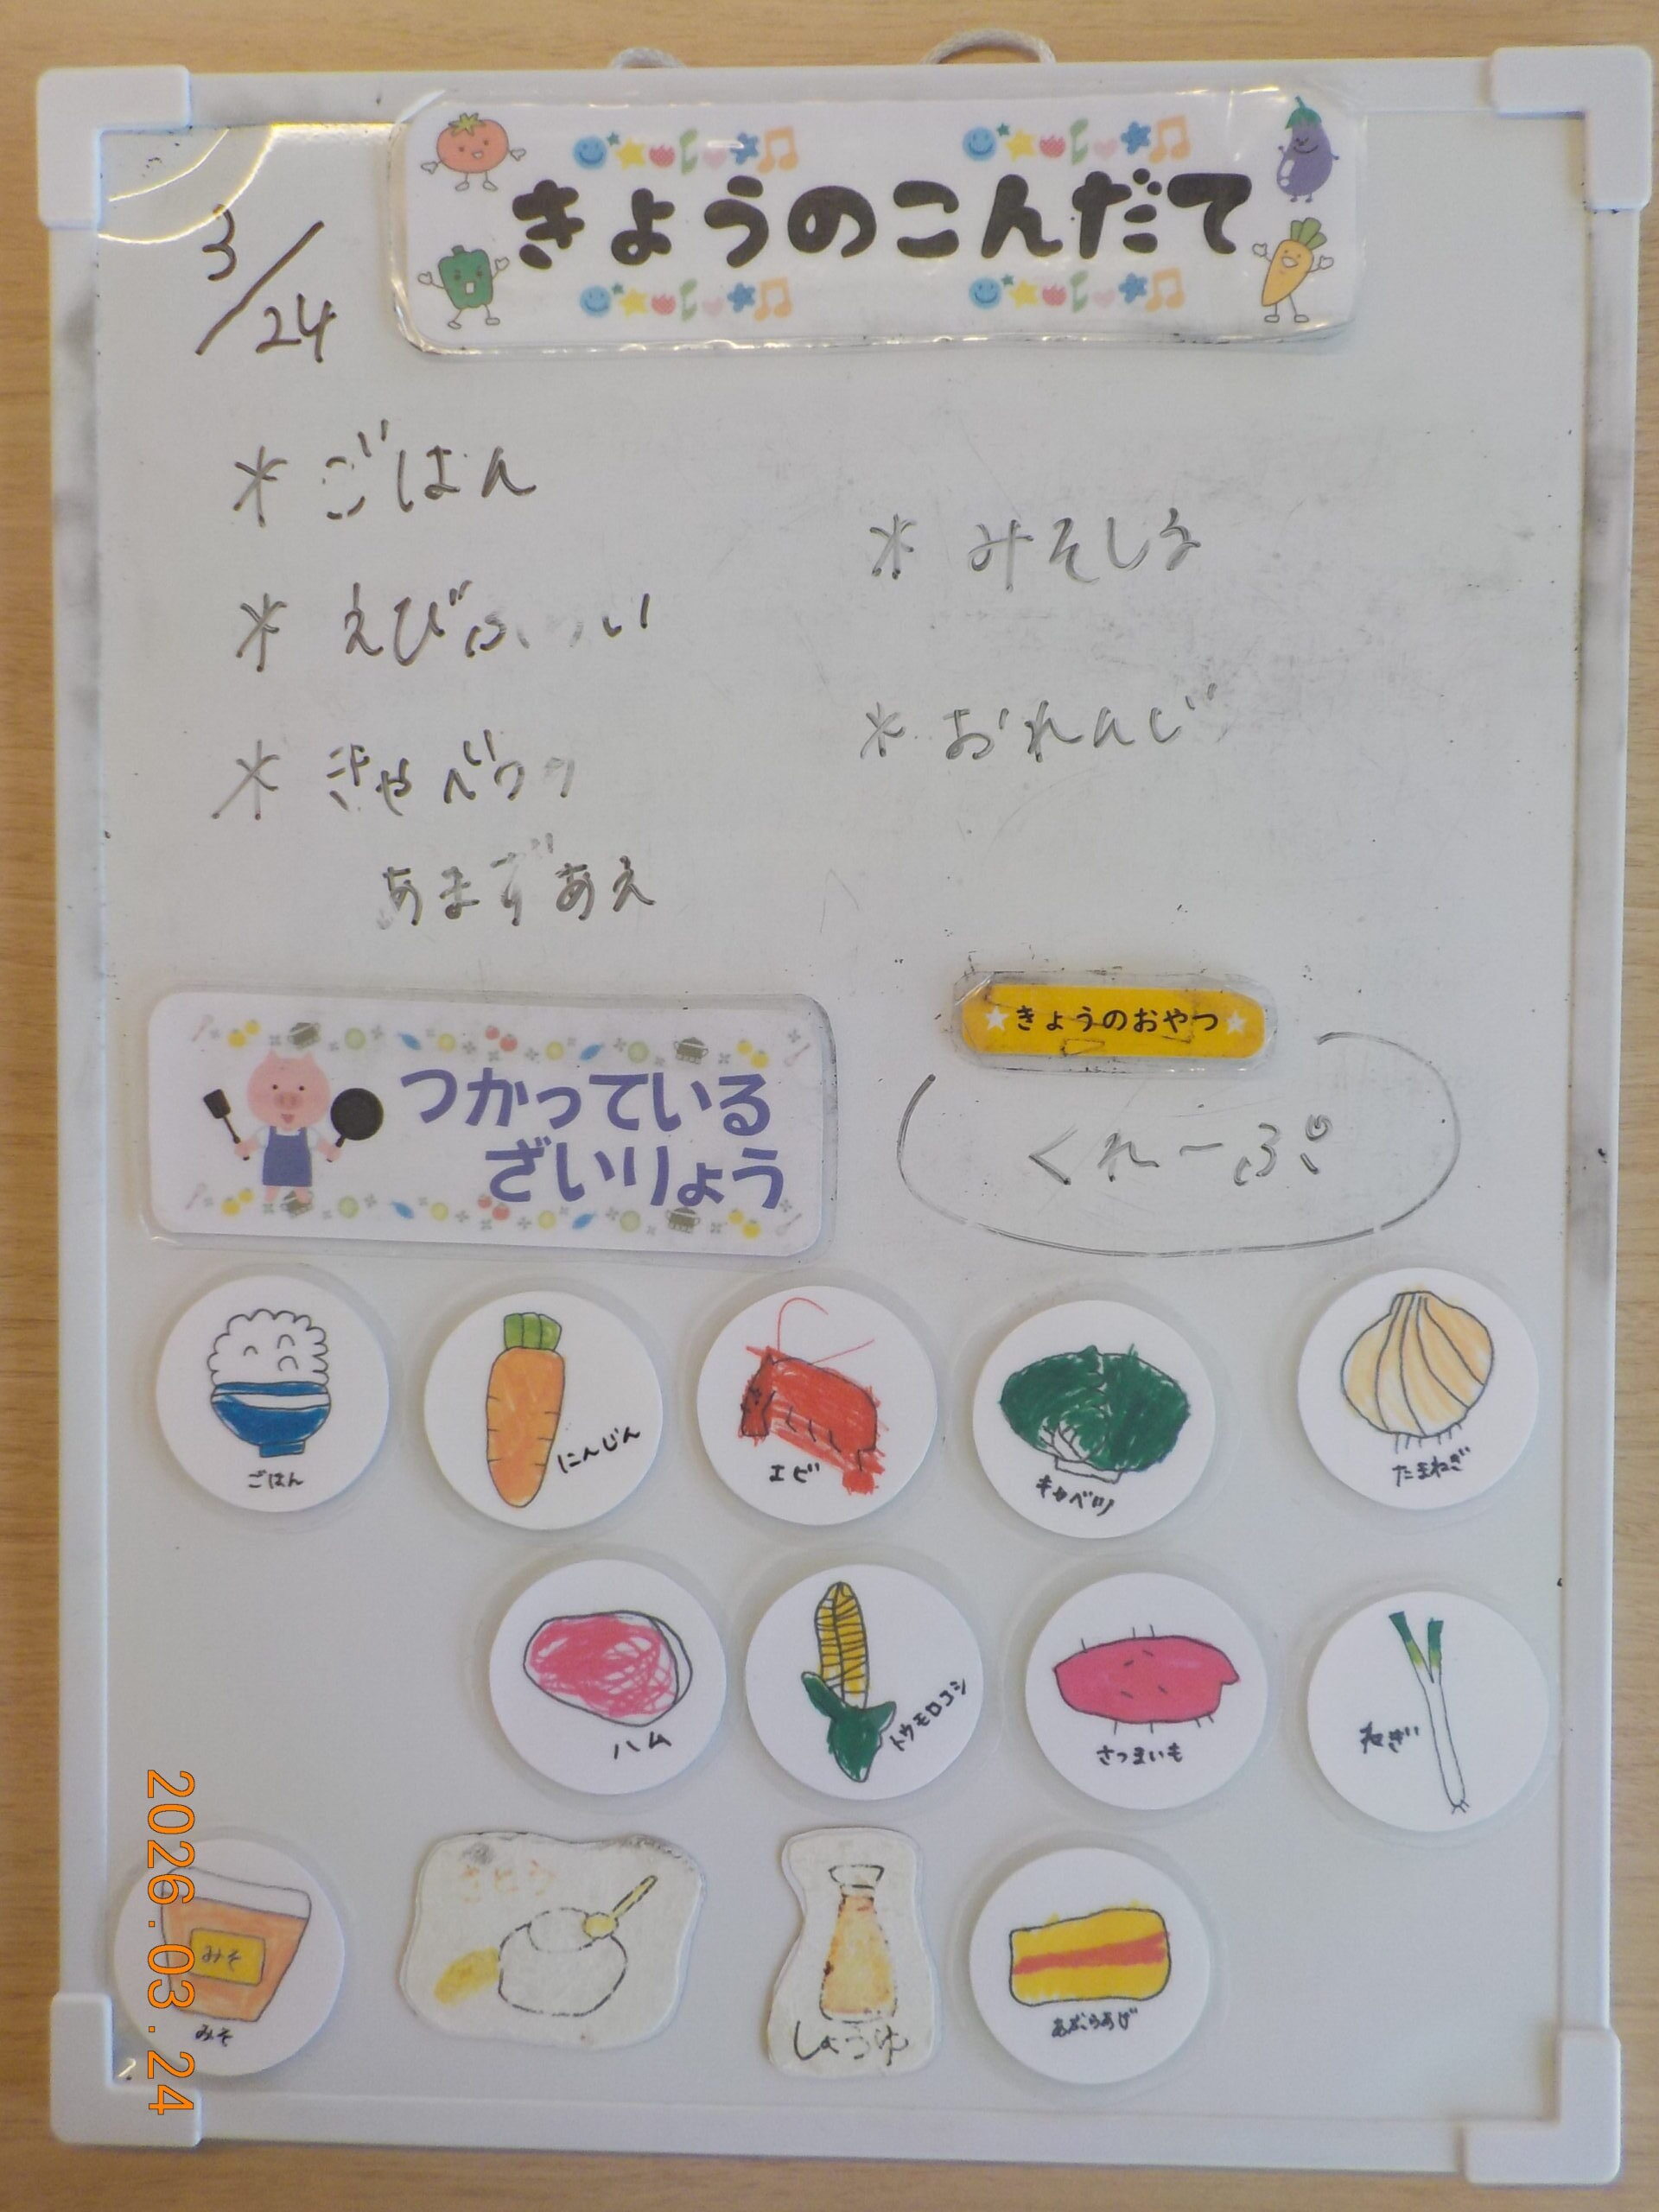 きょうのこんだて
3/24
* ごはん
* えびふらい
* きゃべつ
あまずあえ
* みそしる
* おれんじ
きょうのおやつ
くれーぷ
つかっている
ざいりょう
ごはん
にんじん
エビ
キャベツ
たまねぎ
ハム
トウモロコシ
さつまいも
ねぎ
みそ
みそ
さとう
しょうゆ
あぶらあげ
2026.03.24